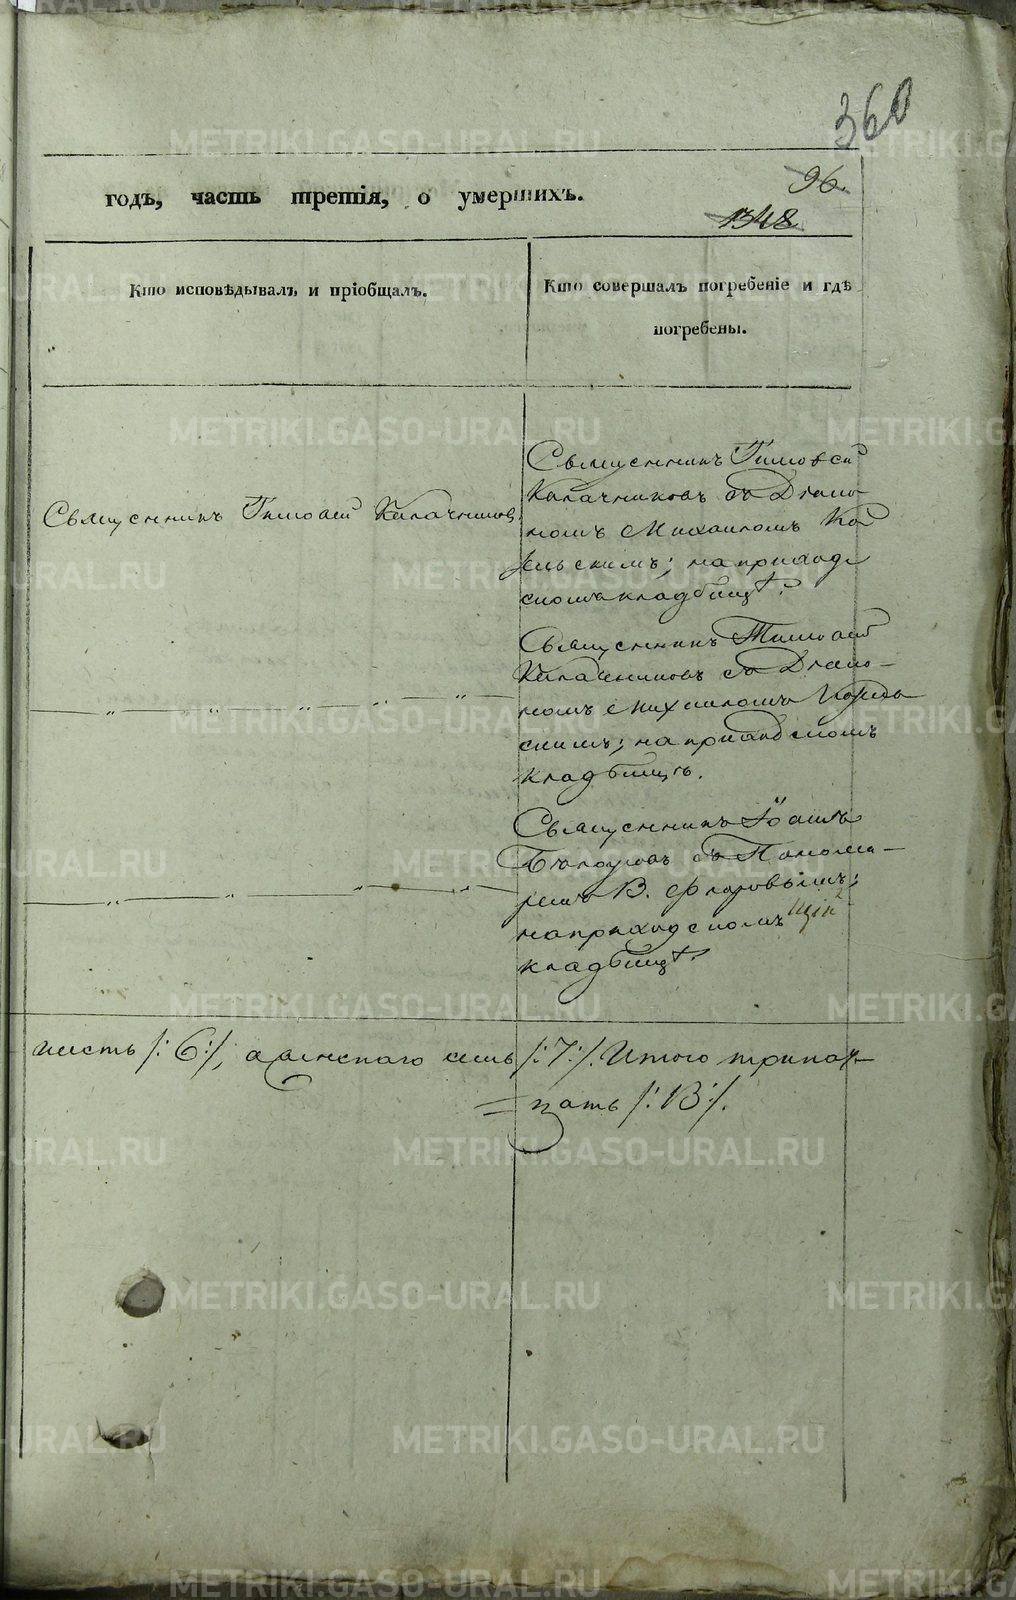 360
96.
1348
годъ, часть третія, о умершихъ.
Кто исповѣдывалъ и пріобщалъ.
Кто совершалъ погребеніе и гдѣ
погребены.
Священникъ Тимофей Калачниковъ
Священникъ Тимофей
Калачниковъ съ Діако-
номъ Михаиломъ
скимъ; на приход
скомъ кладбищѣ.
Священникъ Тимофей
Калачниковъ съ Діако-
номъ Михаиломъ
скимъ; на приходскомъ
кладбищѣ.
Священникъ Іоаннъ
съ Понома-
ремъ В. Флоровымъ;
на приходскомъ
кладбищѣ.
шесть /:6:/, а женскаго семь /:7:/. Итого трина-
=цать /:13:/.
METRIKI.GASO-URAL.RU